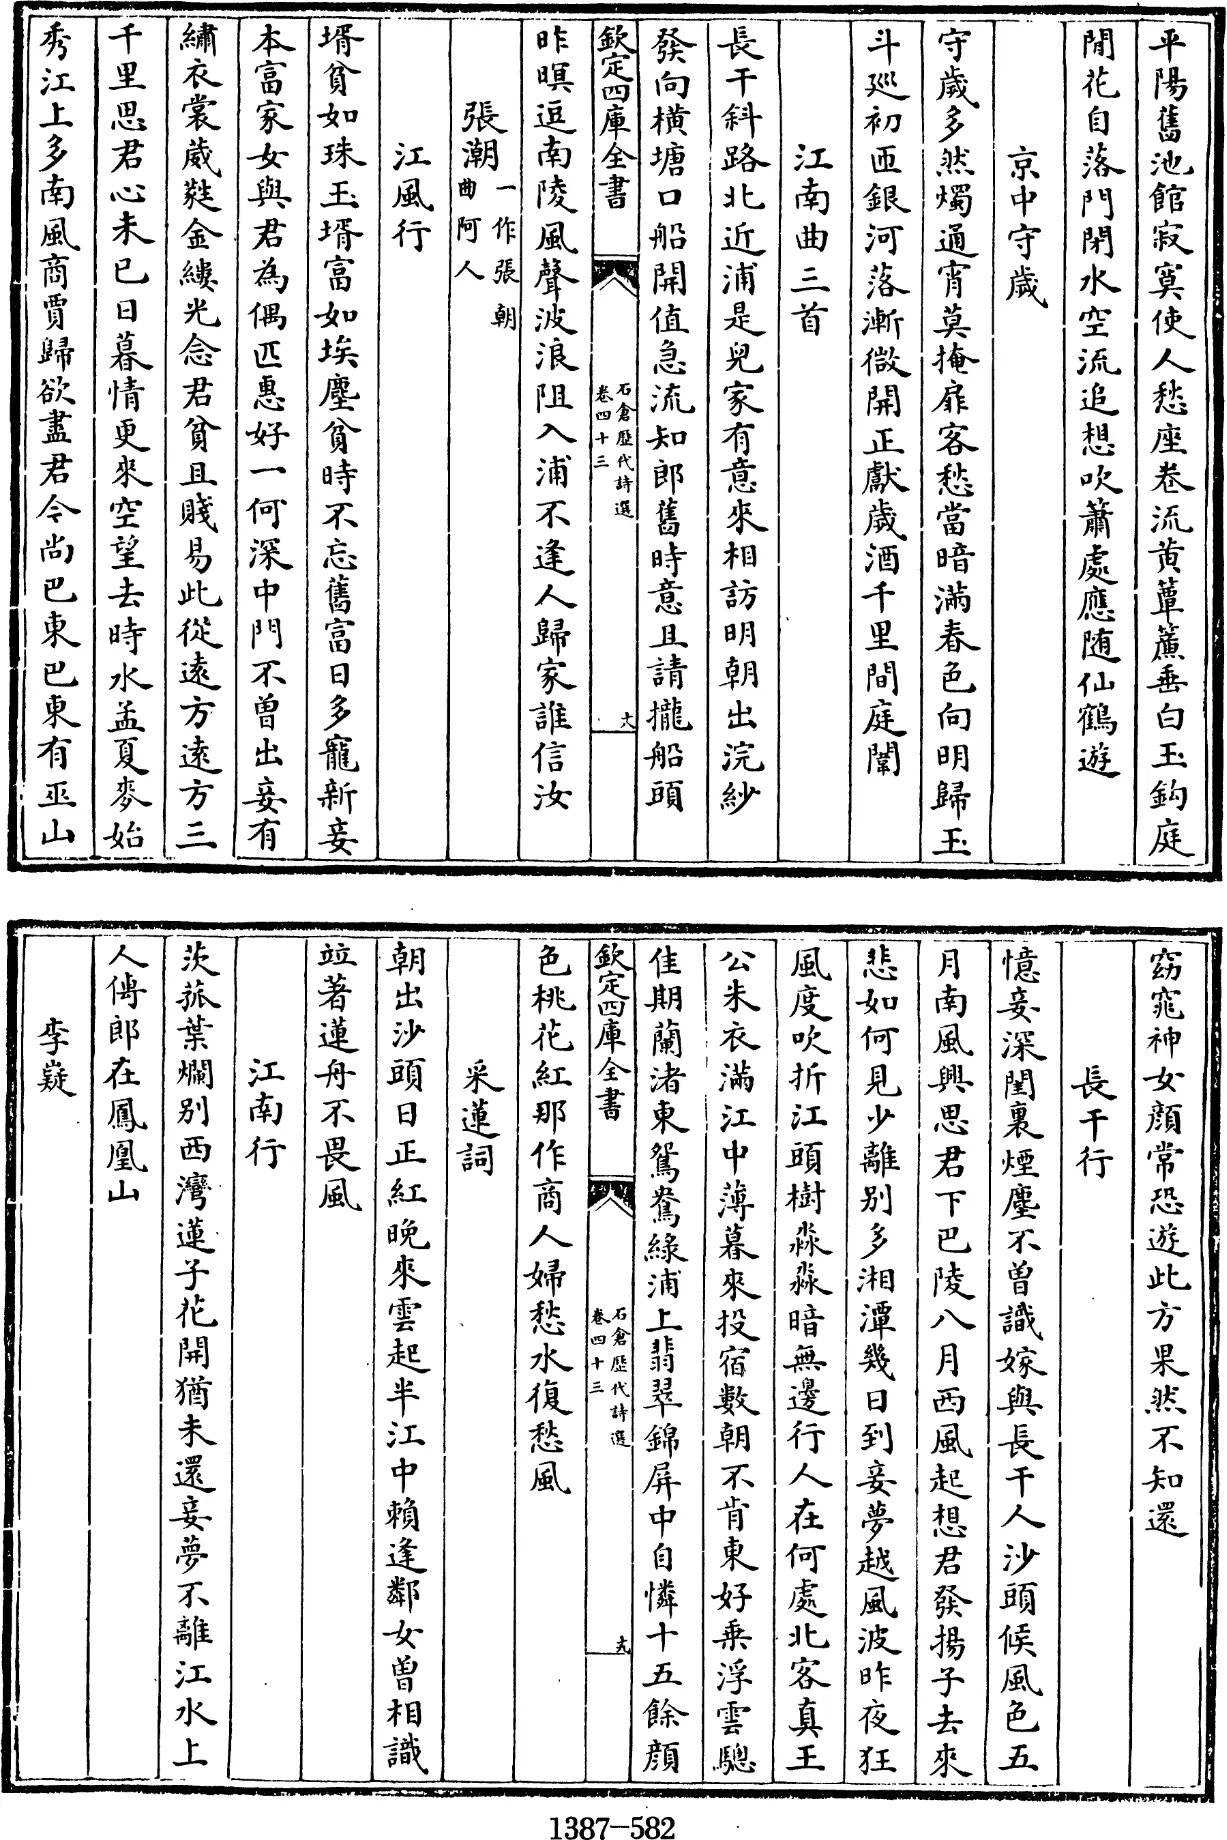 平陽舊池館寂寞使人愁座卷流黄簟簾垂白玉鈎庭
閒花自落門閉水空流追想吹簫處應随仙鶴遊
京中守歲
守歲多然燭通宵莫掩扉客愁當暗滿春色向明歸玉
斗廵初匝銀河落漸微開正獻歲酒千里間庭闈
江南曲三首
長干斜路北近浦是兒家有意來相訪明朝出浣紗
發向横塘口船開值急流知郎舊時意且請攏船頭
欽定四庫全書
石倉歷代詩選
卷四十三
十八
昨暝逗南陵風聲波浪阻入浦不逢人歸家誰信汝
張潮一作張朝
曲阿人
江風行
壻貧如珠玉壻富如埃塵貧時不忘舊富日多寵新妾
本富家女與君為偶匹惠好一何深中門不曾出妾有
繡衣裳葳蕤金縷光念君貧且賤易此從遠方遠方三
千里思君心未已日暮情更來空望去時水孟夏麥始
秀江上多南風商賈歸欲盡君今尚巴東巴東有巫山
窈窕神女顔常恐遊此方果然不知還
長干行
憶妾深閨裏煙塵不曾識嫁與長干人沙頭候風色五
月南風興思君下巴陵八月西風起想君發揚子去來
悲如何見少離别多湘潭幾日到妾夢越風波昨夜狂
風度吹折江頭樹淼淼暗無邊行人在何處北客真王
公朱衣滿江中薄暮來投宿數朝不肯東好乗浮雲驄
佳期蘭渚東鴛鴦綠浦上翡翠錦屏中自憐十五餘顔
欽定四庫全書
石倉歷代詩選
卷四十三
十九
色桃花紅那作商人婦愁水復愁風
采蓮詞
朝出沙頭日正紅晩來雲起半江中賴逢鄰女曾相識
竝著蓮舟不畏風
江南行
茨菰葉爛别西灣蓮子花開猶未還妾夢不離江水上
人傳郎在鳳凰山
李嶷
1387-582